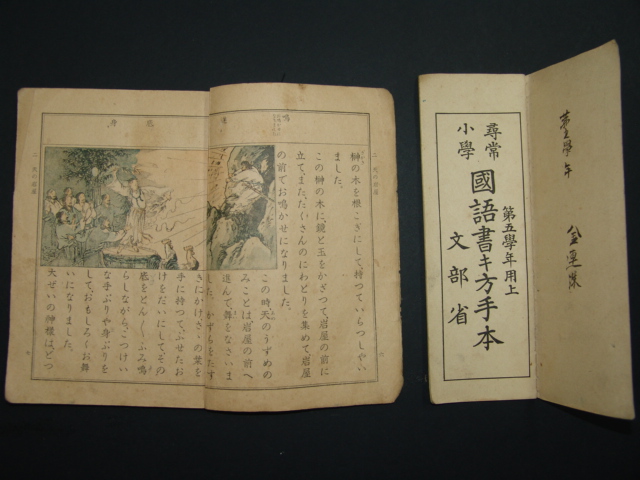 榊の木を根こぎにして、持っていらっしゃい
ました。
この榊の木に、鏡と玉をかざって、岩屋の前に
立て、また、たくさんのにわとりを集めて、岩屋
の前でお鳴かせになりました。
この時、天のうずめの
みことは、岩屋の前へ
進んで、舞をなさいま
した。かずらをたす
きにかけ、さゝの葉を
手に持って、ふせたお
けをだいにして、その
底をとん〳〵ふみ鳴
らしながら、こっけい
な手ぶりや身ぶりを
して、おもしろくお舞
いになりました。
大ぜいの神様は、どっ
尋常
小學
國語書キ方手本
第五學年用上
文部省
第五學年